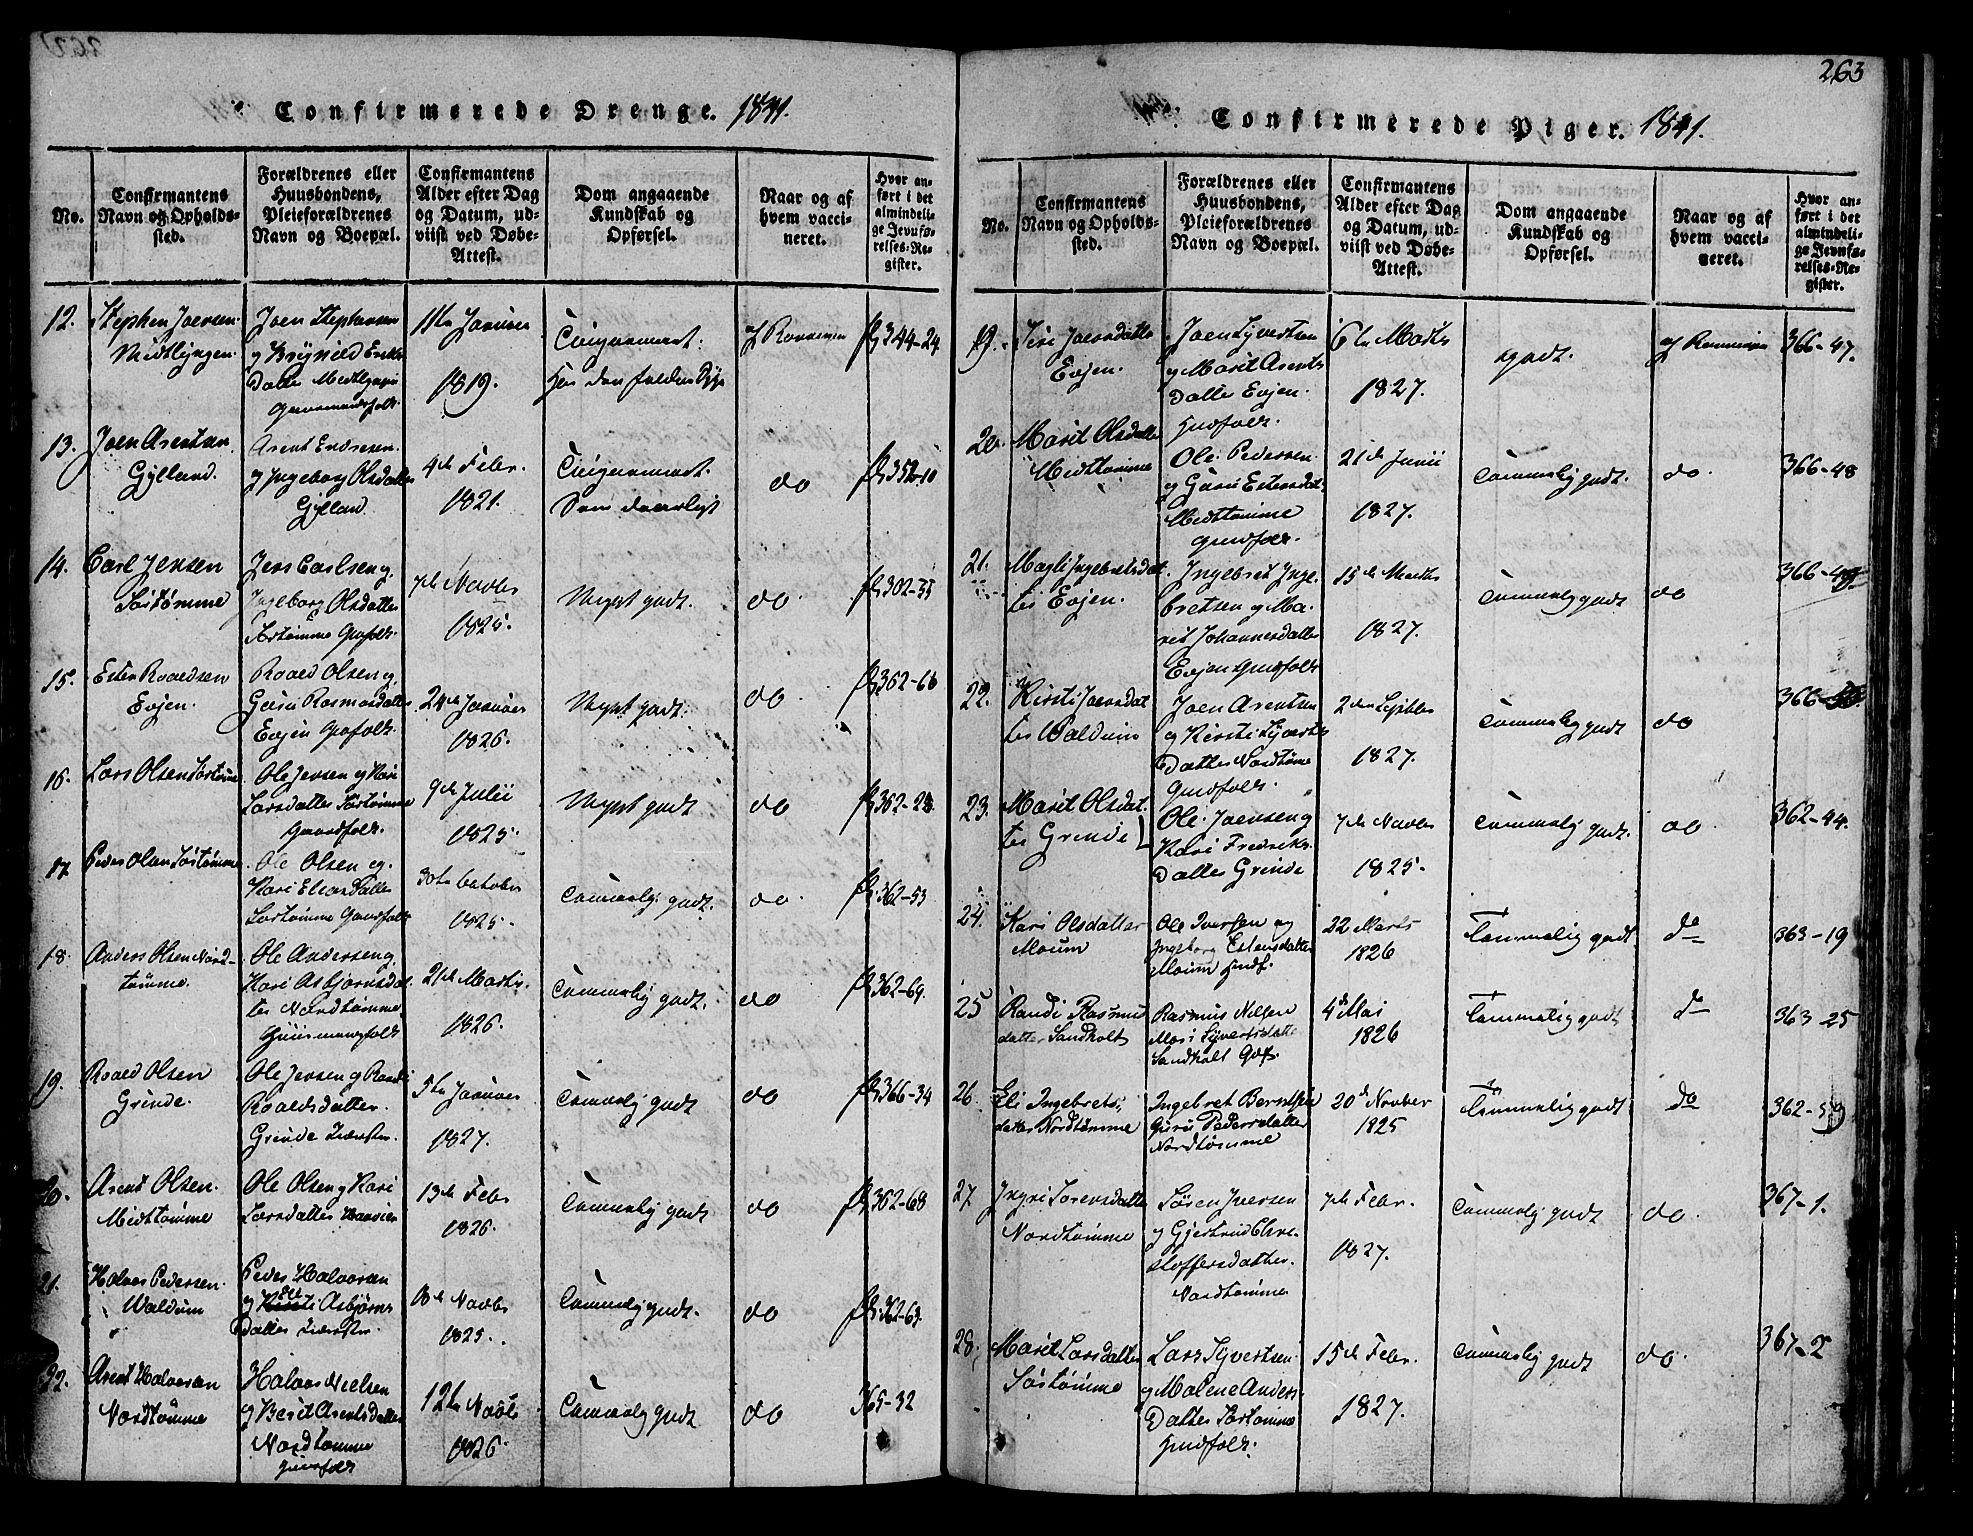 Confirmerede Drenge. 1841.
No.
Confirmantens
Navn og Opholds-
sted.
Forældrenes eller
Huusbondens,
Pleieforældrenes
Navn og Boepæl.
Confirmantens
Alder efter Dag
og Datum, ud-
viist ved Døbe-
Attest.
Dom angaaende
Kundskab og
Opførsel.
Naar og af
hvem vacci-
neret.
Hvor an-
ført i det
almindeli-
ge Jevnfø-
relses-Re-
gister.
12.
Stephen Joensen
Midtlyngen
Joen Stephensen
Datter
11te Januar
1819.
344-24
13.
Joen Arentsen
Gylland.
Arent Endresen
og Ingeborg Olsdatter
Gylland
4de Febr.
1821.
do
352-10
14.
Carl Jensen
Sørtømme
Jens Carlsen og
Ingeborg Olsdatter
Sørtømme
7de Novbr
1825.
Meget godt.
do
302-35
15.
Esten Roaldsen
Evjen.
Roald Olsen og
Guru Rasmusdatter
Evjen
24de Januar
1826.
Meget godt.
do
362-66
16.
Lars Olsen Sørtømme
Ole Jensen og Kari
Larsdatter Sørtømme
9de Julii
1825.
Meget godt
do
362-28
17.
Peder Olsen Sørtømme
Ole Olsen og
Kari
Sørtømme
30te Octobr
1825.
Temmelig godt.
do.
362-53
18.
Anders Olsen Nord-
tømme.
Ole Andersen og
Kari Asbjørnsdat-
ter Nordtømme
21de Martz
1826.
Temmelig godt.
do
362-69.
19.
Roald Olsen
Grinde.
Ole Jensen og Randi
Roaldsdatter.
Grinde
5te Januar
1827.
Temmelig godt
do
366-34
20.
Arent Olsen.
Midttømme
Ole Olsen og Kari
Larsdatter
13de Febr
1826.
Temmelig godt
do
362-68
21.
Halvor Pedersen.
Waldum
Peder Halvorsen
og Asbjørns
Datter
Novbr
1825.
Temmelig godt.
do
362-63.
22.
Arent Halvorsen
Nordtømme
Halvor Nielsen
og Berit Arentsdatter
Nordtømme
12te Novbr
1826.
Temmelig godt
do
365-32
263
Confirmerede Piger. 1841.
No.
Confirmantens
Navn og Opholds-
sted.
Forældrenes eller
Huusbondens,
Pleieforældrenes
Navn og Boepæl.
Confirmantens
Alder efter Dag
og Datum, ud-
viist ved Døbe-
Attest.
Dom angaaende
Kundskab og
Opførsel.
Naar og af
hvem vacci-
neret.
Hvor an-
ført i det
almindeli-
ge Jevnfø-
relses-Re-
gister.
19.
Siri Joensdatter
Evjen.
Joen Syvertsen
og Marit Arents
Datter Evjen.
6te Martz
1827.
godt.
366-47.
20.
Marit Olsdatter
Midttømme
Ole Pedersen
og Guru Estensdat.
Midttømme
21de Junii
1827.
Temmelig godt.
do.
366-48
21.
Magli Ingebretsdat-
ter Evjen.
Ingebret Inge-
bretsen og Ma-
rit Johannesdatter
Evjen
15de Martz
1827.
Temmelig godt
do
366-
22.
Kirsti Joensdat-
ter Waldum
Joen Arentsen
og Kirsti Syverts
Datter Nordtømme
2den Septbr
1827.
Temmelig godt
do
366-
23.
Marit Olsdat-
ter Grinde
Ole Joensen og
Kari Fredriks
Datter Grinde
7de Novbr
1825.
Temmelig godt.
do
362-44.
24.
Kari Olsdatter
Moium
Ole Iversen og
Ingeborg Estensdatter
Moium
22 Marts
1826
Temmelig godt
do
363-19
25
Randi Rasmus
datter Sandholt
Rasmus Nilsen
Mari Syvertsdatt.
Sandholt
4de Mai
1826
Temmelig godt
do
363-25
26.
Eli Ingebrets
datter Nordtømme
Ingebret Berntsen
Guru Pedersdatter
Nordtømme
20de Novber
1825
Temmelig godt
do
362-59
27
Ingri Sørensdatter
Nordtømme
Søren Iversen
og Gjertrud Chri-
stoffersdatter.
Nordtømme
7de Febr.
1827.
Temmelig godt
do.
367-1.
28.
Marit Larsdatter
Sørtømme
Lars Syvertsen
og Malene Anders
Datter Sørtømme
15de Febr.
1827.
Temmelig godt
do.
367-2